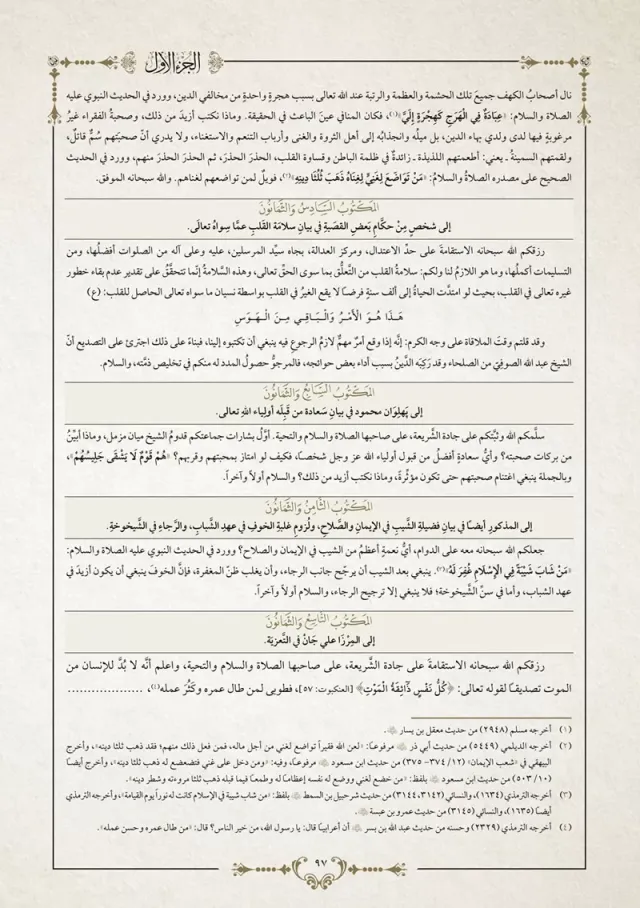 الجزء الأول
نال أصحابُ الكهف جميعَ تلك الحشمة والعظمة والرتبة عند الله تعالى بسبب هجرةٍ واحدةٍ من مخالفي الدين، وورد في الحديث النبوي عليه
الصلاة والسلام: «عِبَادَةٌ فِي الْهَرَجِ كَهِجْرَةٍ إِلَيَّ»(١)، فكان المنافي عينَ الباعث في الحقيقة. وماذا نكتب أزيدَ من ذلك، وصحبةُ الفقراء غيرُ
مرغوبةٍ فيها لدى ولدي بهاء الدين، بل ميلُه وانجذابُه إلى أهل الثروة والغنى وأرباب التنعم والاستغناء، ولا يدري أنّ صحبتَهم سُمٌّ قاتلٌ،
ولقمتَهم السمينةُ ـ يعني: أطعمتهم اللذيذة ـ زائدةٌ في ظلمة الباطن وقساوة القلب، الحذرَ الحذرَ، ثم الحذرَ الحذرَ منهم، وورد في الحديث
الصحيح على مصدره الصلاةُ والسلامُ: «مَنْ تَوَاضَعَ لِغَنِيٍّ لِغِنَاهُ ذَهَبَ ثُلُثَا دِينِهِ»(٢)، فويلٌ لمن تواضعهم لغناهم. والله سبحانه الموفق.
المكتوب السادس والثمانون
إلى شخصٍ مِنْ حكَّامِ بَعضِ القصَبَةِ في بيانِ سلامَة القَلبِ عمَّا سِواهُ تعالَى.
رزقكم الله سبحانه الاستقامةَ على حدِّ الاعتدال، ومركز العدالة، بجاه سيِّد المرسلين، عليه وعلى آله من الصلوات أفضلُها، ومن
التسليمات أكملُها، وما هو اللازمُ لنا ولكم: سلامةُ القلب من التَّعلُّق بما سوى الحقِّ تعالى، وهذه السَّلامةُ إنّما تتحقَّقُ على تقدير عدم بقاء خطور
غيره تعالى في القلب، بحيث لو امتدَّت الحياةُ إلى ألف سنةٍ فرضًا لا يقع الغيرُ في القلب بواسطة نسيان ما سواه تعالى الحاصل للقلب: (ع)
هَـذَا هُـوَ الْأَمْـرُ وَالْبَـاقِـي مِـنَ الْـهَـوَسِ
وقد قلتم وقتَ الملاقاة على وجه الكرم: إنَّه إذا وقع أمرٌ مهمٌّ لازمُ الرجوعِ فيه ينبغي أن تكتبوه إلينا، فبناءً على ذلك اجترئ على التصديع أنّ
الشيخ عبد الله الصوفيّ من الصلحاء وقد ركِبَه الدَّينُ بسبب أداء بعض حوائجه، فالمرجوُّ حصولُ المدد له منكم في تخليص ذمَّته، والسلام.
المكتوب السابع والثمانون
إلى پَهلِوَان محمود في بيانِ سَعادة من قَبِلَه أولياء اللهِ تعالى.
سلَّمكم الله وثبَّتكم على جادة الشَّريعة، على صاحبها الصلاة والسلام والتحية. أوَّلُ بشارات جماعتكم قدومُ الشيخ ميان مزمل، وماذا أُبيِّنُ
من بركات صحبته؟ وأيُّ سعادةٍ أفضلُ من قبول أولياء الله عز وجل شخصًا، فكيف لو امتاز بمحبتهم وقربهم؟ «هُمْ قَوْمٌ لَا يَشْقَى جَلِيسُهُمْ»،
وبالجملة ينبغي اغتنام صحبتهم حتى تكون مؤثِّرةً، وماذا نكتب أزيد من ذلك؟ والسلام أولاً وآخراً.
المكتوب الثامن والثمانون
إلى المذكورِ أيضًا في بيانِ فضيلةِ الشَّيبِ في الإيمانِ والصَّلاحِ، ولُزومِ غلبةِ الخوفِ في عهدِ الشَّبابِ، والرَّجاءِ في الشَّيخوخةِ.
جعلكم الله سبحانه معه على الدوام، أيُّ نعمةٍ أعظمُ من الشيب في الإيمان والصلاح؟ وورد في الحديث النبوي عليه الصلاة والسلام:
«مَنْ شَابَ شَيْبَةً فِي الْإِسْلَامِ غُفِرَ لَهُ»(٣). ينبغي بعد الشيب أن يرجّح جانب الرجاء، وأن يغلب ظنّ المغفرة، فإنَّ الخوفَ ينبغي أن يكون أزيدَ في
عهد الشباب، وأما في سنِّ الشيخوخة؛ فلا ينبغي إلا ترجيح الرجاء، والسلام أولاً وآخراً.
المكتوب التاسع والثمانون
إلى المِرْزَا علي جَانْ في التَّعزيَة.
رزقكم الله سبحانه الاستقامةَ على جادة الشَّريعة، على صاحبها الصلاة والسلام والتحية، واعلم أنَّه لا بُدَّ للإنسان من
الموت تصديقًا لقوله تعالى: ﴿كُلُّ نَفْسٍ ذَائِقَةُ الْمَوْتِ﴾ [العنكبوت: ٥٧]، فطوبى لمن طال عمره وكَثُرَ عمله(٤)، ...................
(١) أخرجه مسلم (٢٩٤٨) من حديث معقل بن يسار ﵁.
(٢) أخرجه الديلمي (٥٤٤٩) من حديث أبي ذر ﵁ مرفوعًا: «لعن الله فقيراً تواضع لغني من أجل ماله، فمن فعل ذلك منهم؛ فقد ذهب ثلثا دينه»، وأخرج
البيهقي في «شعب الإيمان» (١٢/ ٣٧٤- ٣٧٥) من حديث ابن مسعود ﵁ مرفوعًا، وفيه: «ومن دخل على غني فتضعضع له ذهب ثلثا دينه»، وأخرج أيضًا
(١٠/ ٥٠٣) من حديث ابن مسعود ﵁ بلفظ: «من خضع لغني ووضع له نفسه إعظامًا له وطمعًا فيما قبله ذهب ثلثا مروءته وشطر دينه».
(٣) أخرجه الترمذي (١٦٣٤)، والنسائي (٣١٤٢، ٣١٤٤) من حديث شرحبيل بن السمط ﵁ بلفظ: «من شاب شيبة في الإسلام كانت له نوراً يوم القيامة»، وأخرجه الترمذي
أيضًا (١٦٣٥)، والنسائي (٣١٤٥) من حديث عمرو بن عبسة ﵁.
(٤) أخرجه الترمذي (٢٣٢٩) وحسنه من حديث عبد الله بن بسر ﵁ أن أعرابيًا قال: يا رسول الله، من خير الناس؟ قال: «من طال عمره وحسن عمله».
٩٧